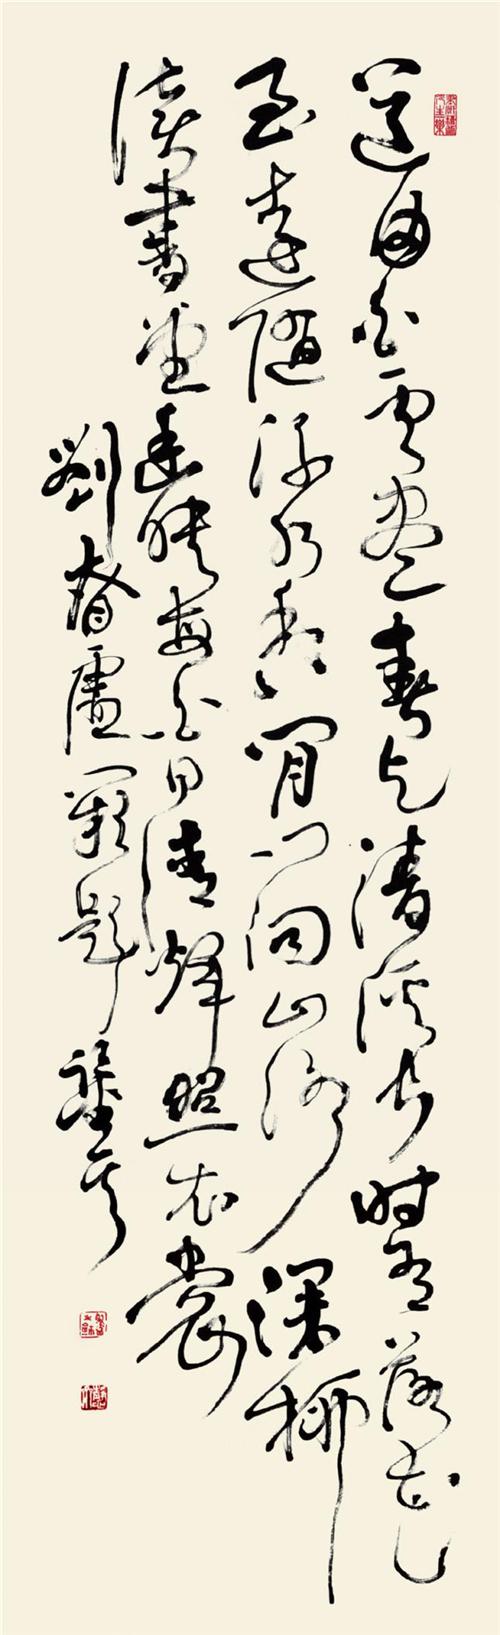 道由白雲盡春与清溪長時有落花
至遠隨流水香閒門向山路深柳
讀書堂幽映每白日清輝照衣裳
劉昚虛闕題